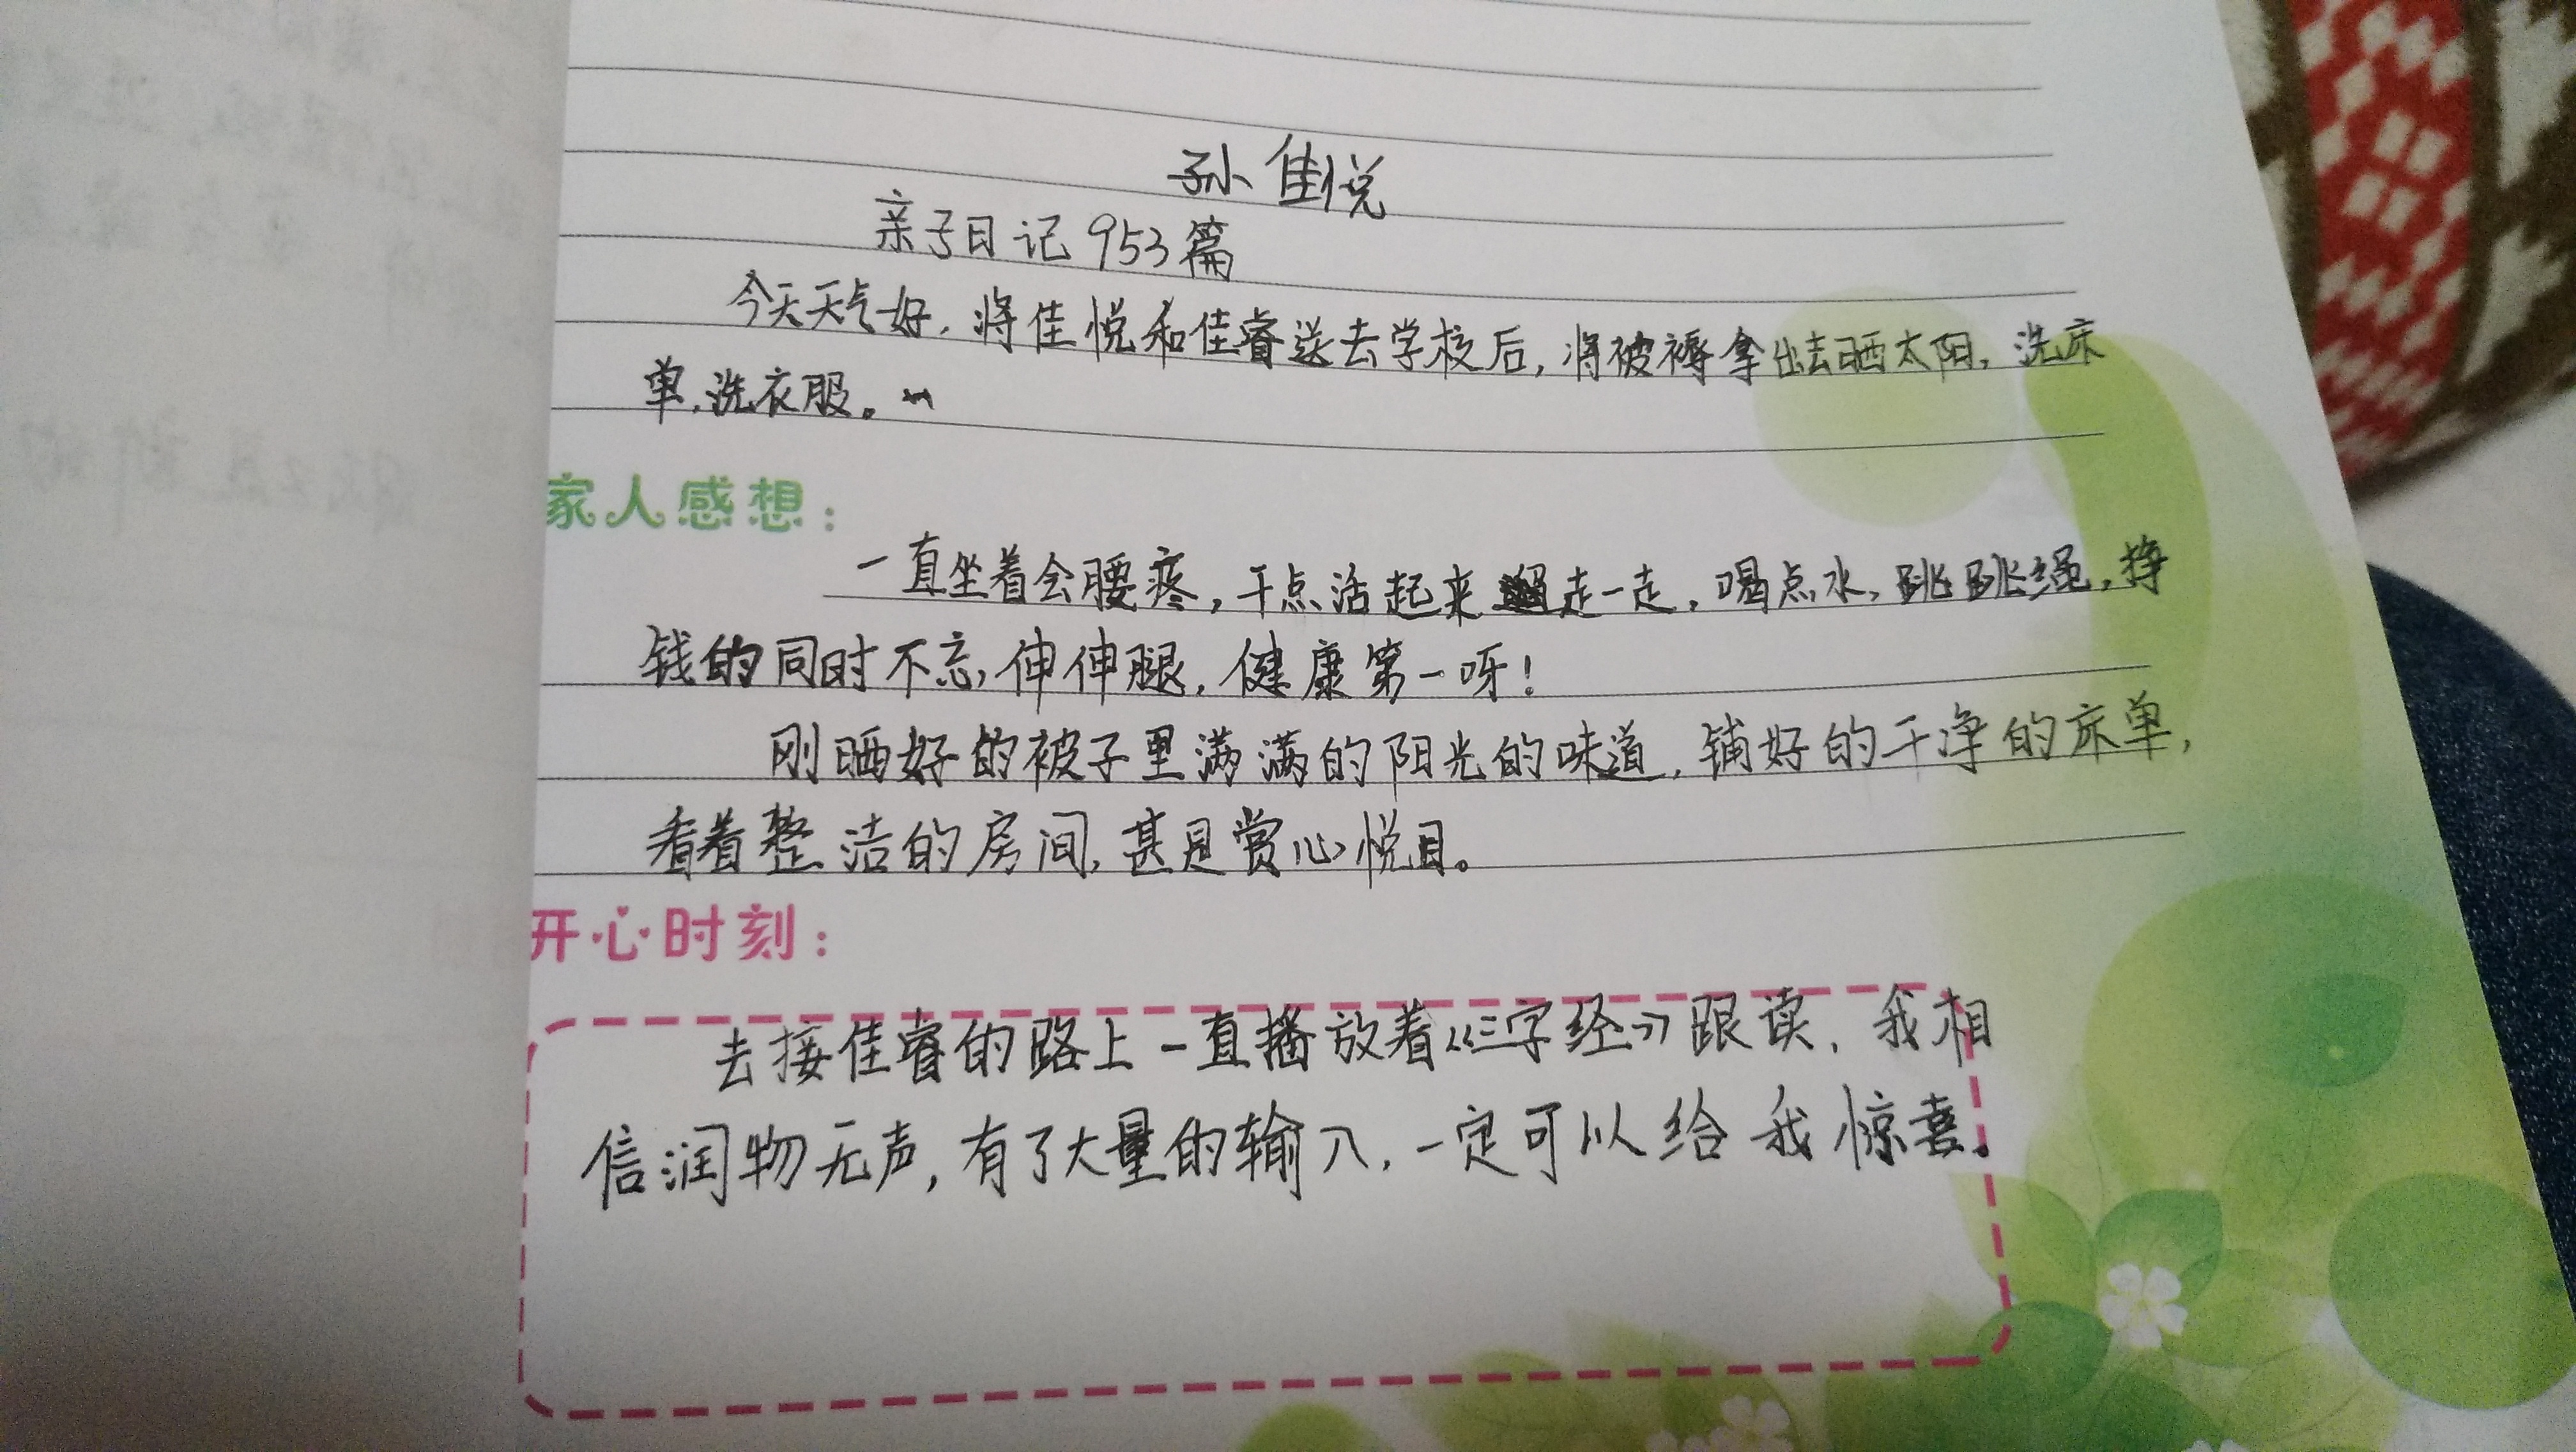 孙佳悦
亲子日记953篇
今天天气好，将佳悦和佳睿送去学校后，将被褥拿出去晒太阳，洗床
单，洗衣服。
家人感想：
一直坐着会腰疼，干点活起来走一走，喝点水，跳跳绳，挣
钱的同时不忘，伸伸腿，健康第一呀！
刚晒好的被子里满满的阳光的味道，铺好的干净的床单，
看着整洁的房间，甚是赏心悦目。
开心时刻：
去接佳睿的路上一直播放着《三字经》跟读，我相
信润物无声，有了大量的输入，一定可以给我惊喜。